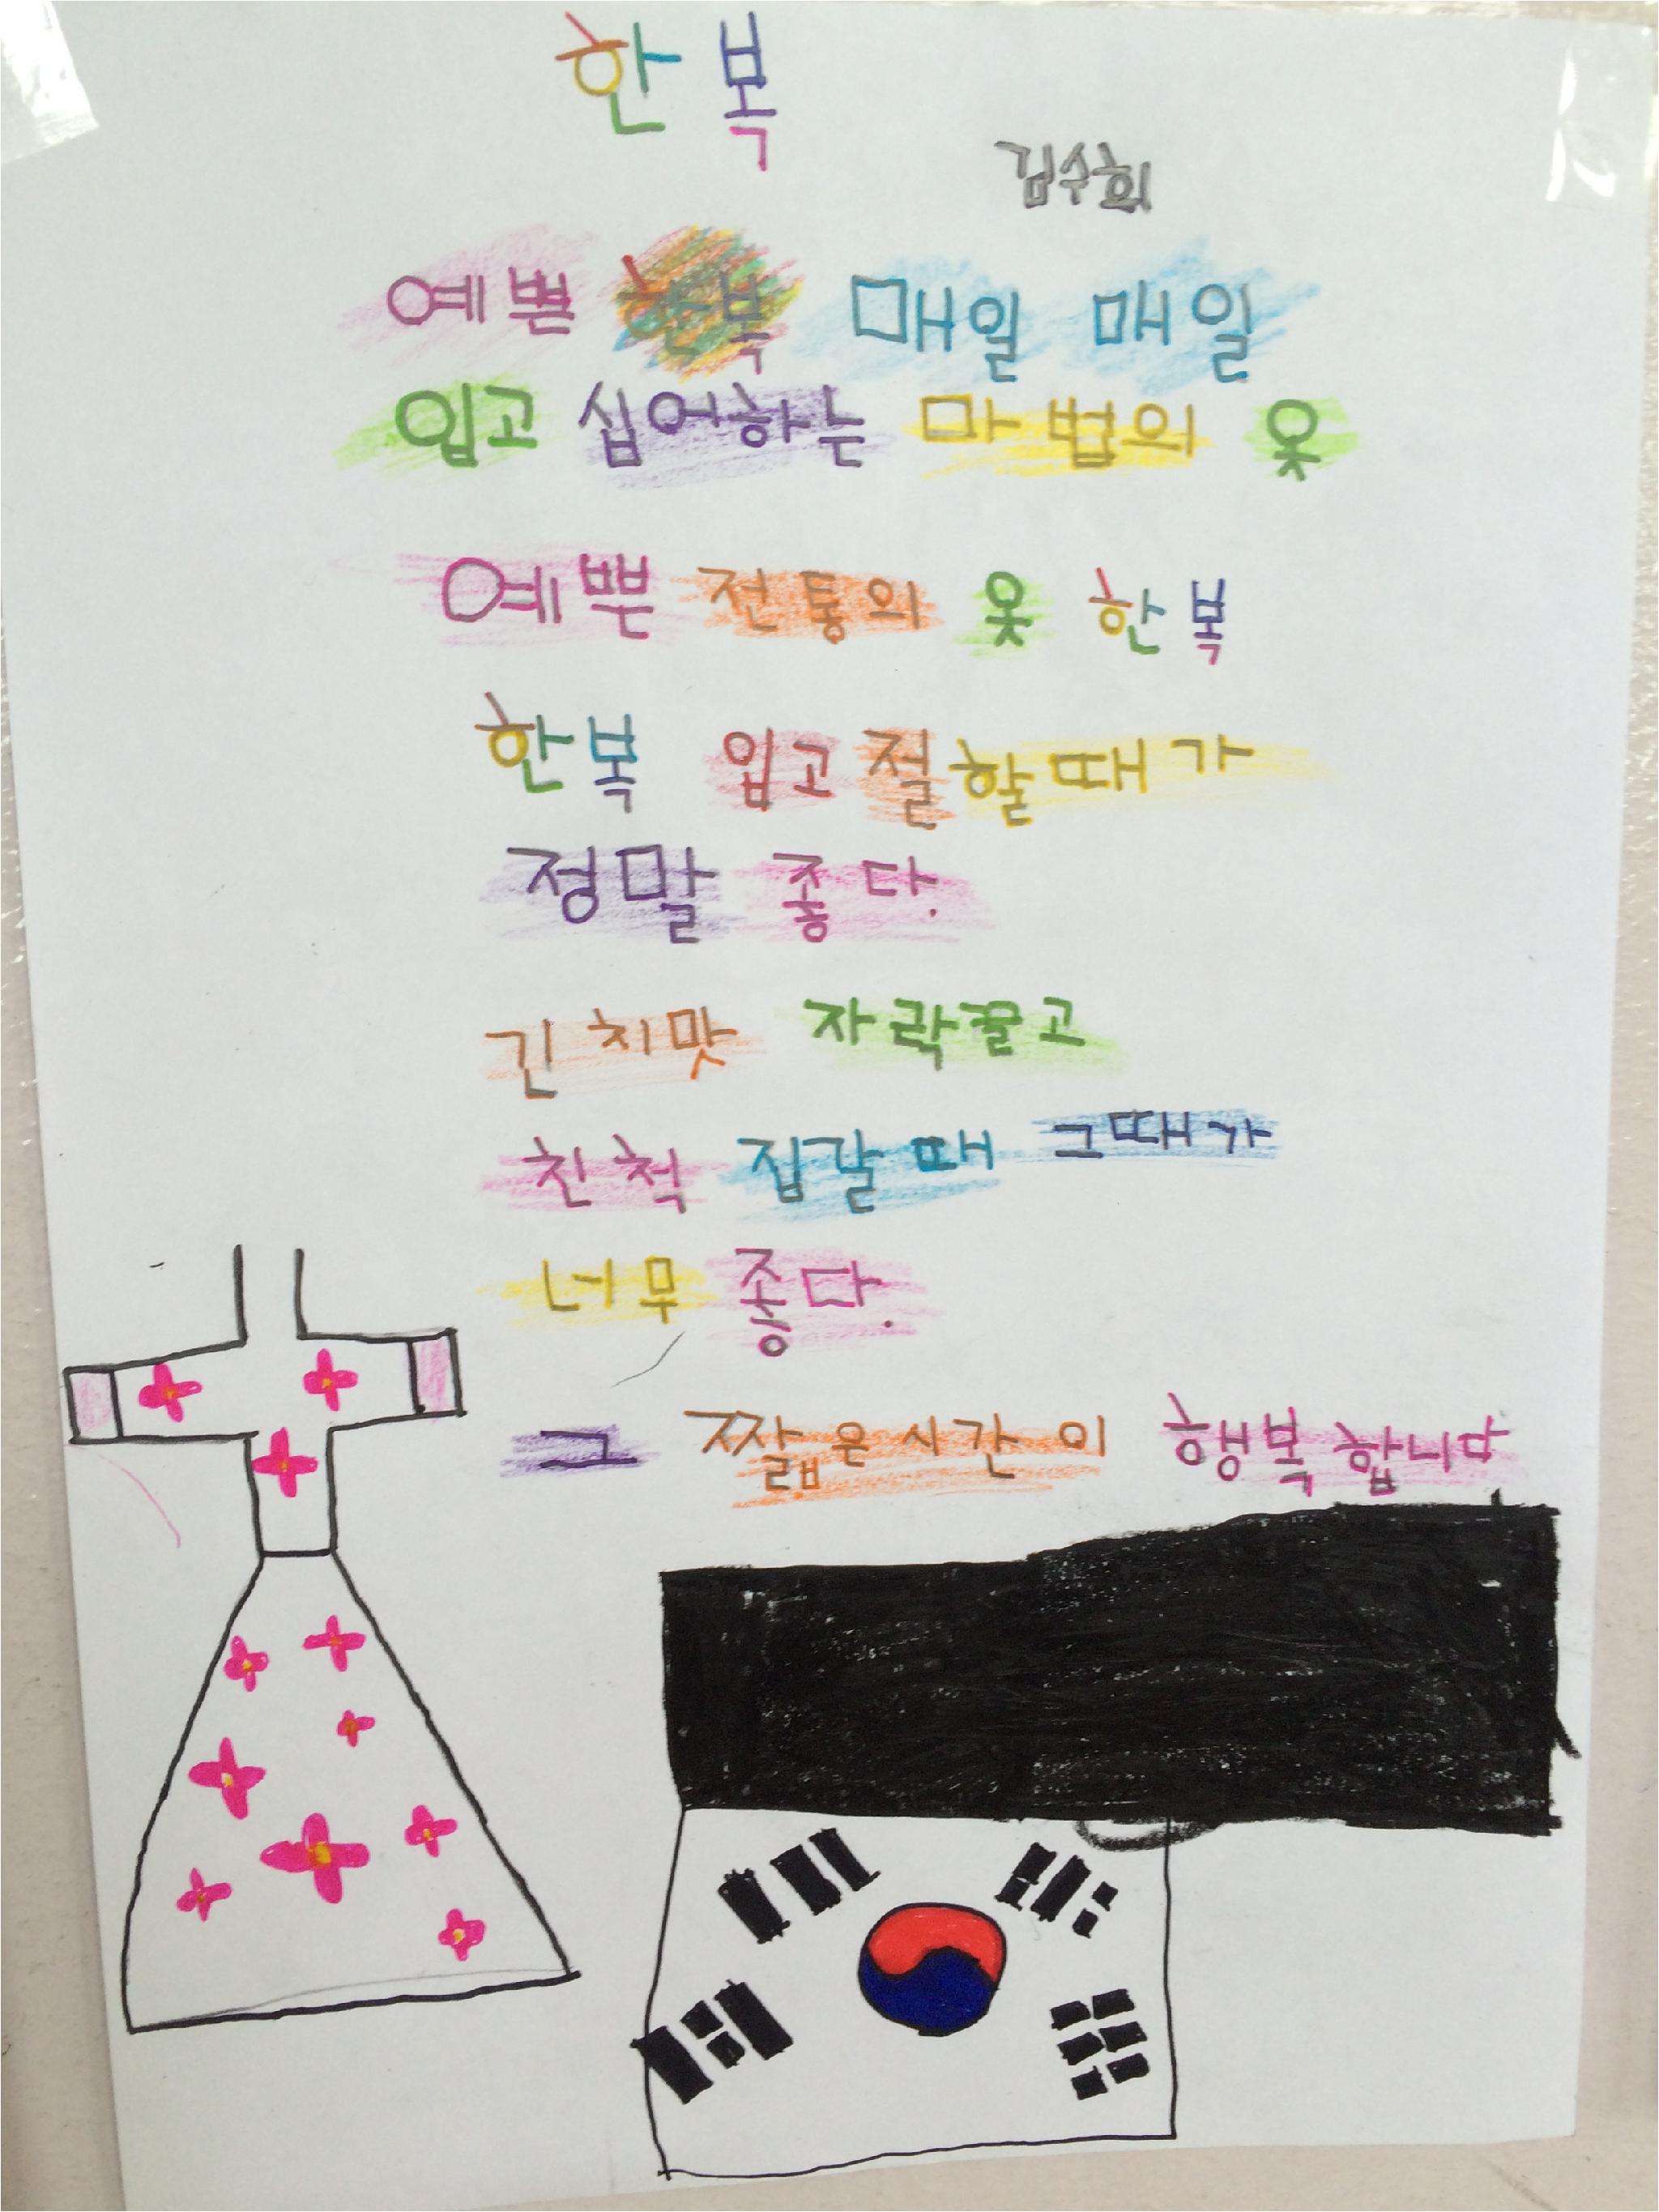 한복
김수희
예쁜 한복 매일 매일
입고 십어하는 마법의 옷
예쁜 전통의 옷 한복
한복 입고 절할때가
정말 좋다.
긴 치맛 자락끌고
친척 집갈 때 그때가
너무 좋다.
그 짧은시간이 행복합니다.